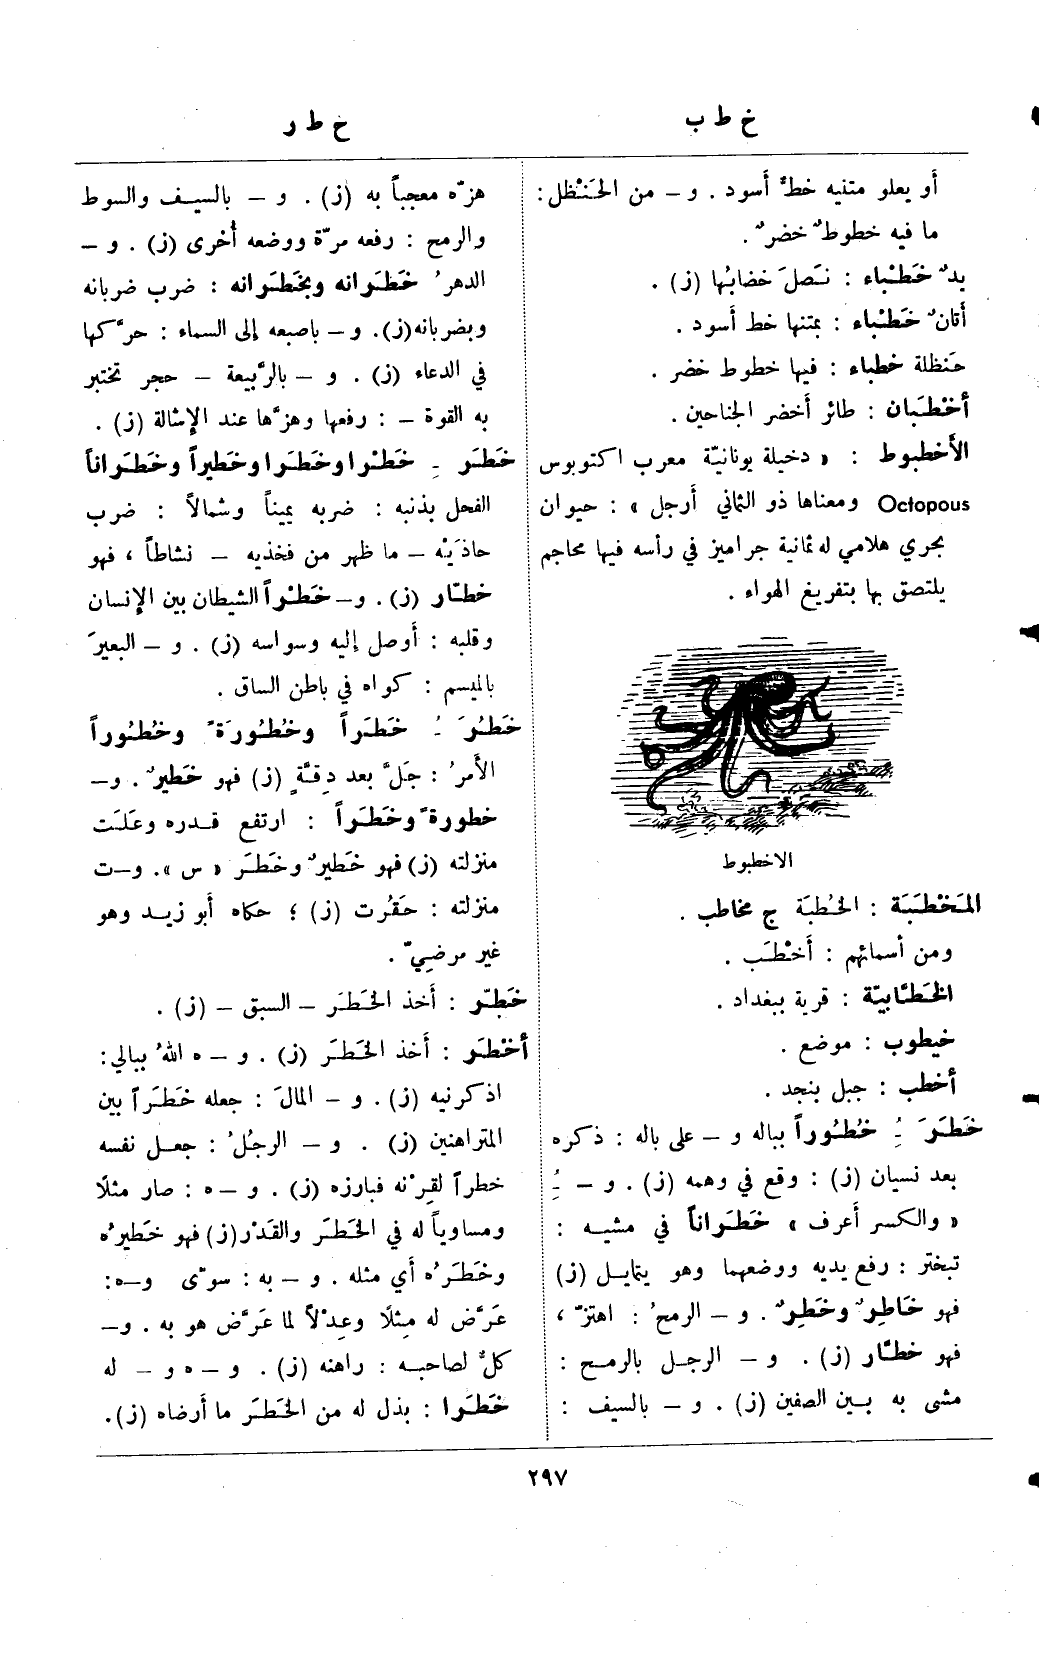 خ ط ب
خ ط ر
أو يعلو متنيه خطٌّ أسود . و – من الحَنْظل :
ما فيه خطوطٌ خضرٌ .
يدٌ خَطْباء : نَصَلَ خضابُها (ز) .
أتانٌ خَطْباء : بمتنها خط أسود .
حَنظلة خطباء : فيها خطوط خضر .
أخْطَبان : طائر أخضر الجناحين .
الأخطبوط : « دخيلة يونانيّة معرب اكتوبوس
Octopous ومعناها ذو الثماني أرجل » : حيوان
بحري هلامي له ثمانية جراميز في رأسه فيها محاجم
يلتصق بها بتفريغ الهواء .
الاخطبوط
المَخْطَبَة : الخُطبَة ج مخاطب .
ومن أسمائهم : أخْطَب .
الخَطّابيّة : قرية ببغداد .
خيطوب : موضع .
أخطب : جبل بنجد .
خَطَرَ ـُِ خُطُوراً بباله و – على باله : ذكره
بعد نسيان (ز) : وقع في وهمه (ز) . و – ـُِ
« والكسر أعرف » خَطَراناً في مشيه :
تبختر : رفع يديه ووضعهما وهو يتمايل (ز)
فهو خَاطِرٌ وخَطِرٌ . و – الرمحُ : اهتزّ ،
فهو خطّار (ز) . و – الرجل بالرمح :
مشى به بين الصفين (ز) . و – بالسيف :
هزّه معجباً به (ز) . و – بالسيف والسوط
والرمح : رفعه مرّة ووضعه أُخرى (ز) . و –
الدهرُ خَطَرانه وبخَطَرانه : ضرب ضربانه
وبضربانه (ز) . و – باصبعه إلى السماء : حرَّكها
في الدعاء (ز) . و – بالرَّبيعة – حجر تختبر
به القوة – : رفعها وهزَّها عند الإشالة (ز) .
خَطَر ـِ خَطْرا وخَطَرا وخَطيراً وخَطَراناً
الفحل بذنبه : ضربه يميناً وشمالاً : ضرب
حاذَيْه – ما ظهر من فخذيه – نشاطاً ، فهو
خطّار (ز) . و – خَطْراً الشيطان بين الإنسان
وقلبه : أوصل إليه وسواسه (ز) . و – البعيرَ
بالميسم : كواه في باطن الساق .
خَطُرَ ـُ خَطَراً وخُطُورَةً وخُطُوراً
الأمرُ : جَلَّ بعد دِقَّةٍ (ز) فهو خَطيرٌ . و –
خطورةً وخَطَراً : ارتفع قدره وعَلَت
منزلته (ز) فهو خَطيرٌ وخَطَر « س » . و – ت
منزلته : حَقُرت (ز) ؛ حكاه أبو زيد وهو
غير مرضيّ .
خَطِر : أخذ الخَطَر – السبق – (ز) .
أخْطَر : أخذ الخَطَر (ز) . و – ه اللهُ ببالي :
اذكرنيه (ز) . و – المالَ : جعله خَطَراً بين
المتراهنين (ز) . و – الرجلُ : جعل نفسه
خطراً لقِرْنه فبارزه (ز) . و – ه : صار مثلًا
ومساوياً له في الخَطَر والقَدْر (ز) فهو خَطيرُه
وخَطَرُه أي مثله . و – به : سوّى و – ه :
عَرَّض له مِثلًا وعِدْلاً لما عَرَّض هو به . و –
كلٌّ لصاحبه : راهنه (ز) . و – ه و – له
خَطَرا : بذل له من الخَطَر ما أرضاه (ز) .
٢٩٧